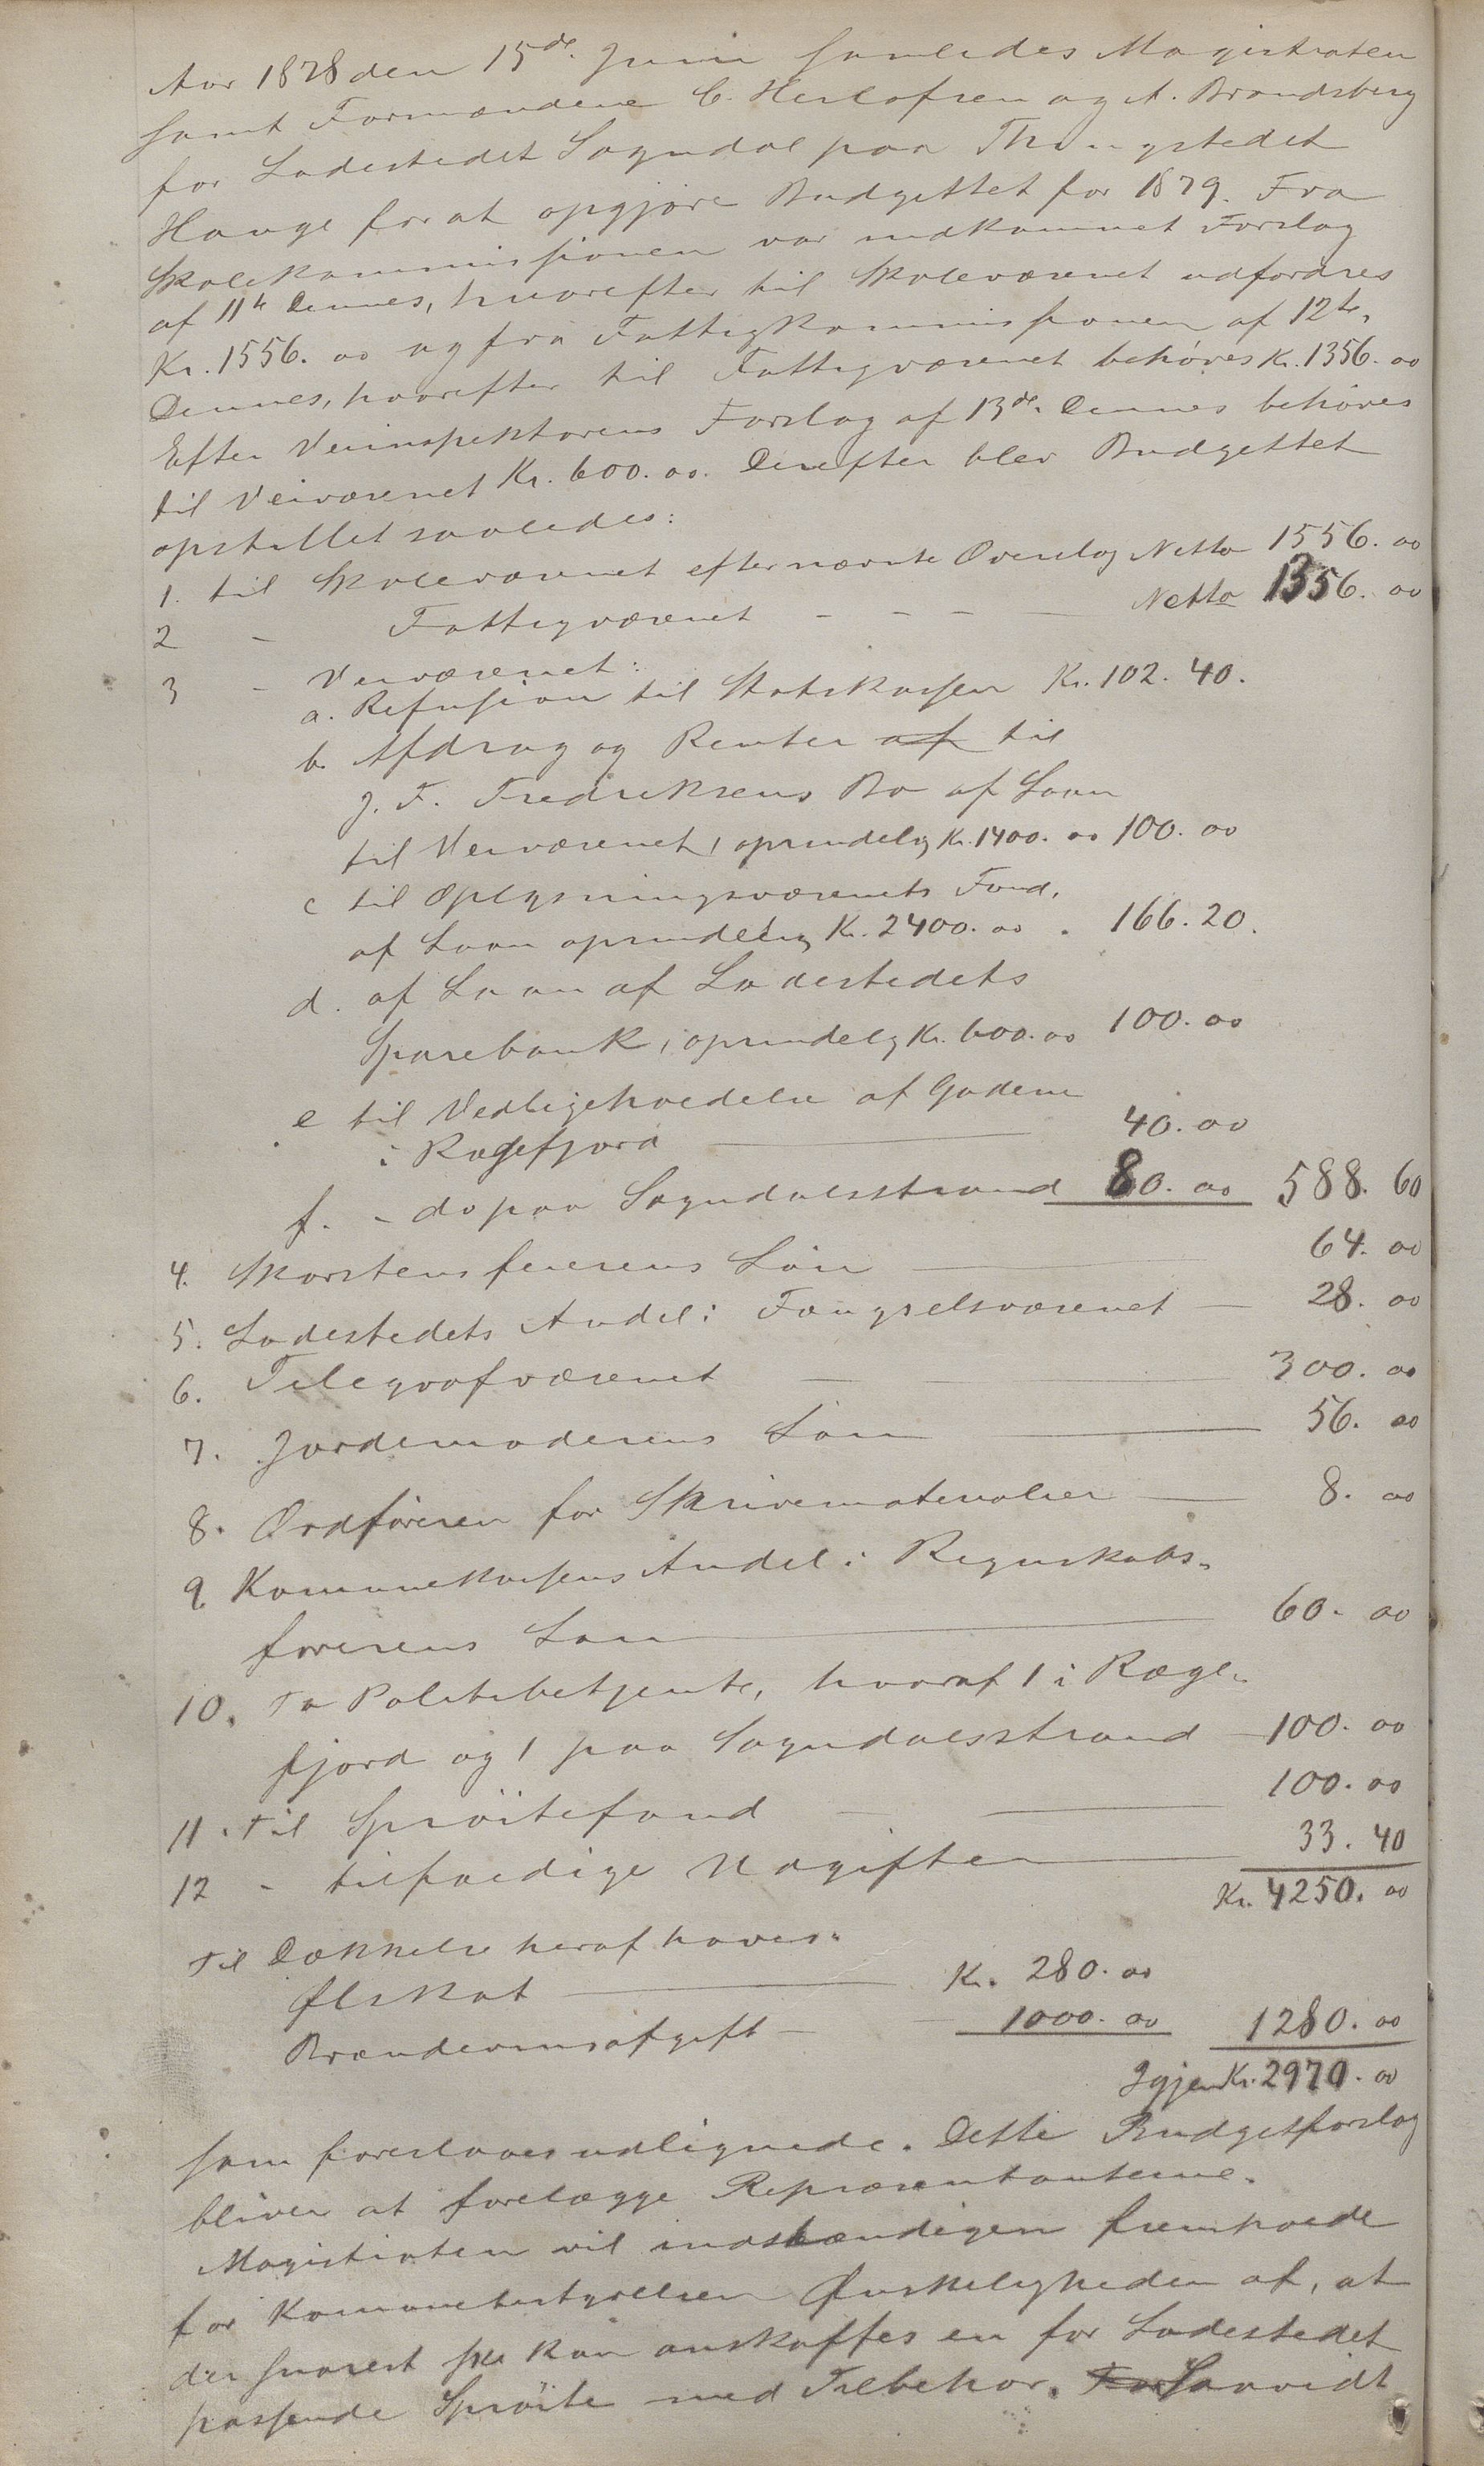 Aar 1878 den 15de Juni samledes Magistraten
samt Formændene C. Herlofsen og A. Brandsberg
for Ladestedet Sogndal paa Thingstedet
Hauge for at opgjøre Budgettet for 1879. Fra
Skolekommissionen var indkommet Forslag
af 11te Dennes, hvorefter til Skolevæsenet udfordres
Kr. 1556. 00 og fra Fattigkommissionen af 12te
Dennes, hvorefter til Fattigvæsenet behøves Kr. 1356. 00
Efter Veiinspektørens Forslag af 13de Dennes behøves
til Veivæsenet Kr. 600. 00. Derefter blev Budgettet
opstillet saaledes:
1. til Skolevæsenet efter nævnte Overslag Netto 1556. 00
2 - Fattigvæsenet - - - - Netto 1356. 00
3 - Veivæsenet:
a. Refusion til Statskassen Kr. 102. 40.
b. Afdrag og Renter af til
J. F. Fredriksens Bo af Laan
til Veivæsenet, oprindelig Kr. 1400. 00 100. 00
c til Oplysningsvæsenets Fond,
af Laan oprindelig Kr. 2400. 00 . 166. 20.
d. af Laan af Ladestedets
Sparebank, oprindelig Kr. 600. 00 100. 00
e til Vedligeholdelse af Gaderne
i Rægefjord 40. 00
f. - do paa Sogndalsstrand 80. 00 588. 60
4. Skorstensfeierens Løn 64. 00
5. Ladestedets Andel i Fængselsvæsenet 28. 00
6. Telegrafvæsenet 300. 00
7. Jordemoderens Løn 56. 00
8. Ordføreren for Skrivematerialier 8. 00
9. Kommunekassens Andel i Regnskabs-
førerens Løn 60. 00
10. To Politibetjente, hvoraf 1 i Ræge-
fjord og 1 paa Sogndalsstrand 100. 00
11. Til Sprøitefond 100. 00
12 - tilfældige Udgifter 33. 40
Kr. 4250. 00
Til Dækkelse heraf haves:
Ølskat Kr. 280. 00
Brændevinsafgift 1000. 00 1280. 00
Igjen Kr. 2970. 00
som foreslaaes udlignede. Dette Budgetforslag
bliver at forelægge Repræsentanterne.
Magistraten vil indstændigen fremholde
for Kommunebestyrelsen Ønskeligheden af, at
der snarest kan anskaffes en for Ladestedet
passende Sprøite med Tilbehør. For Saavidt